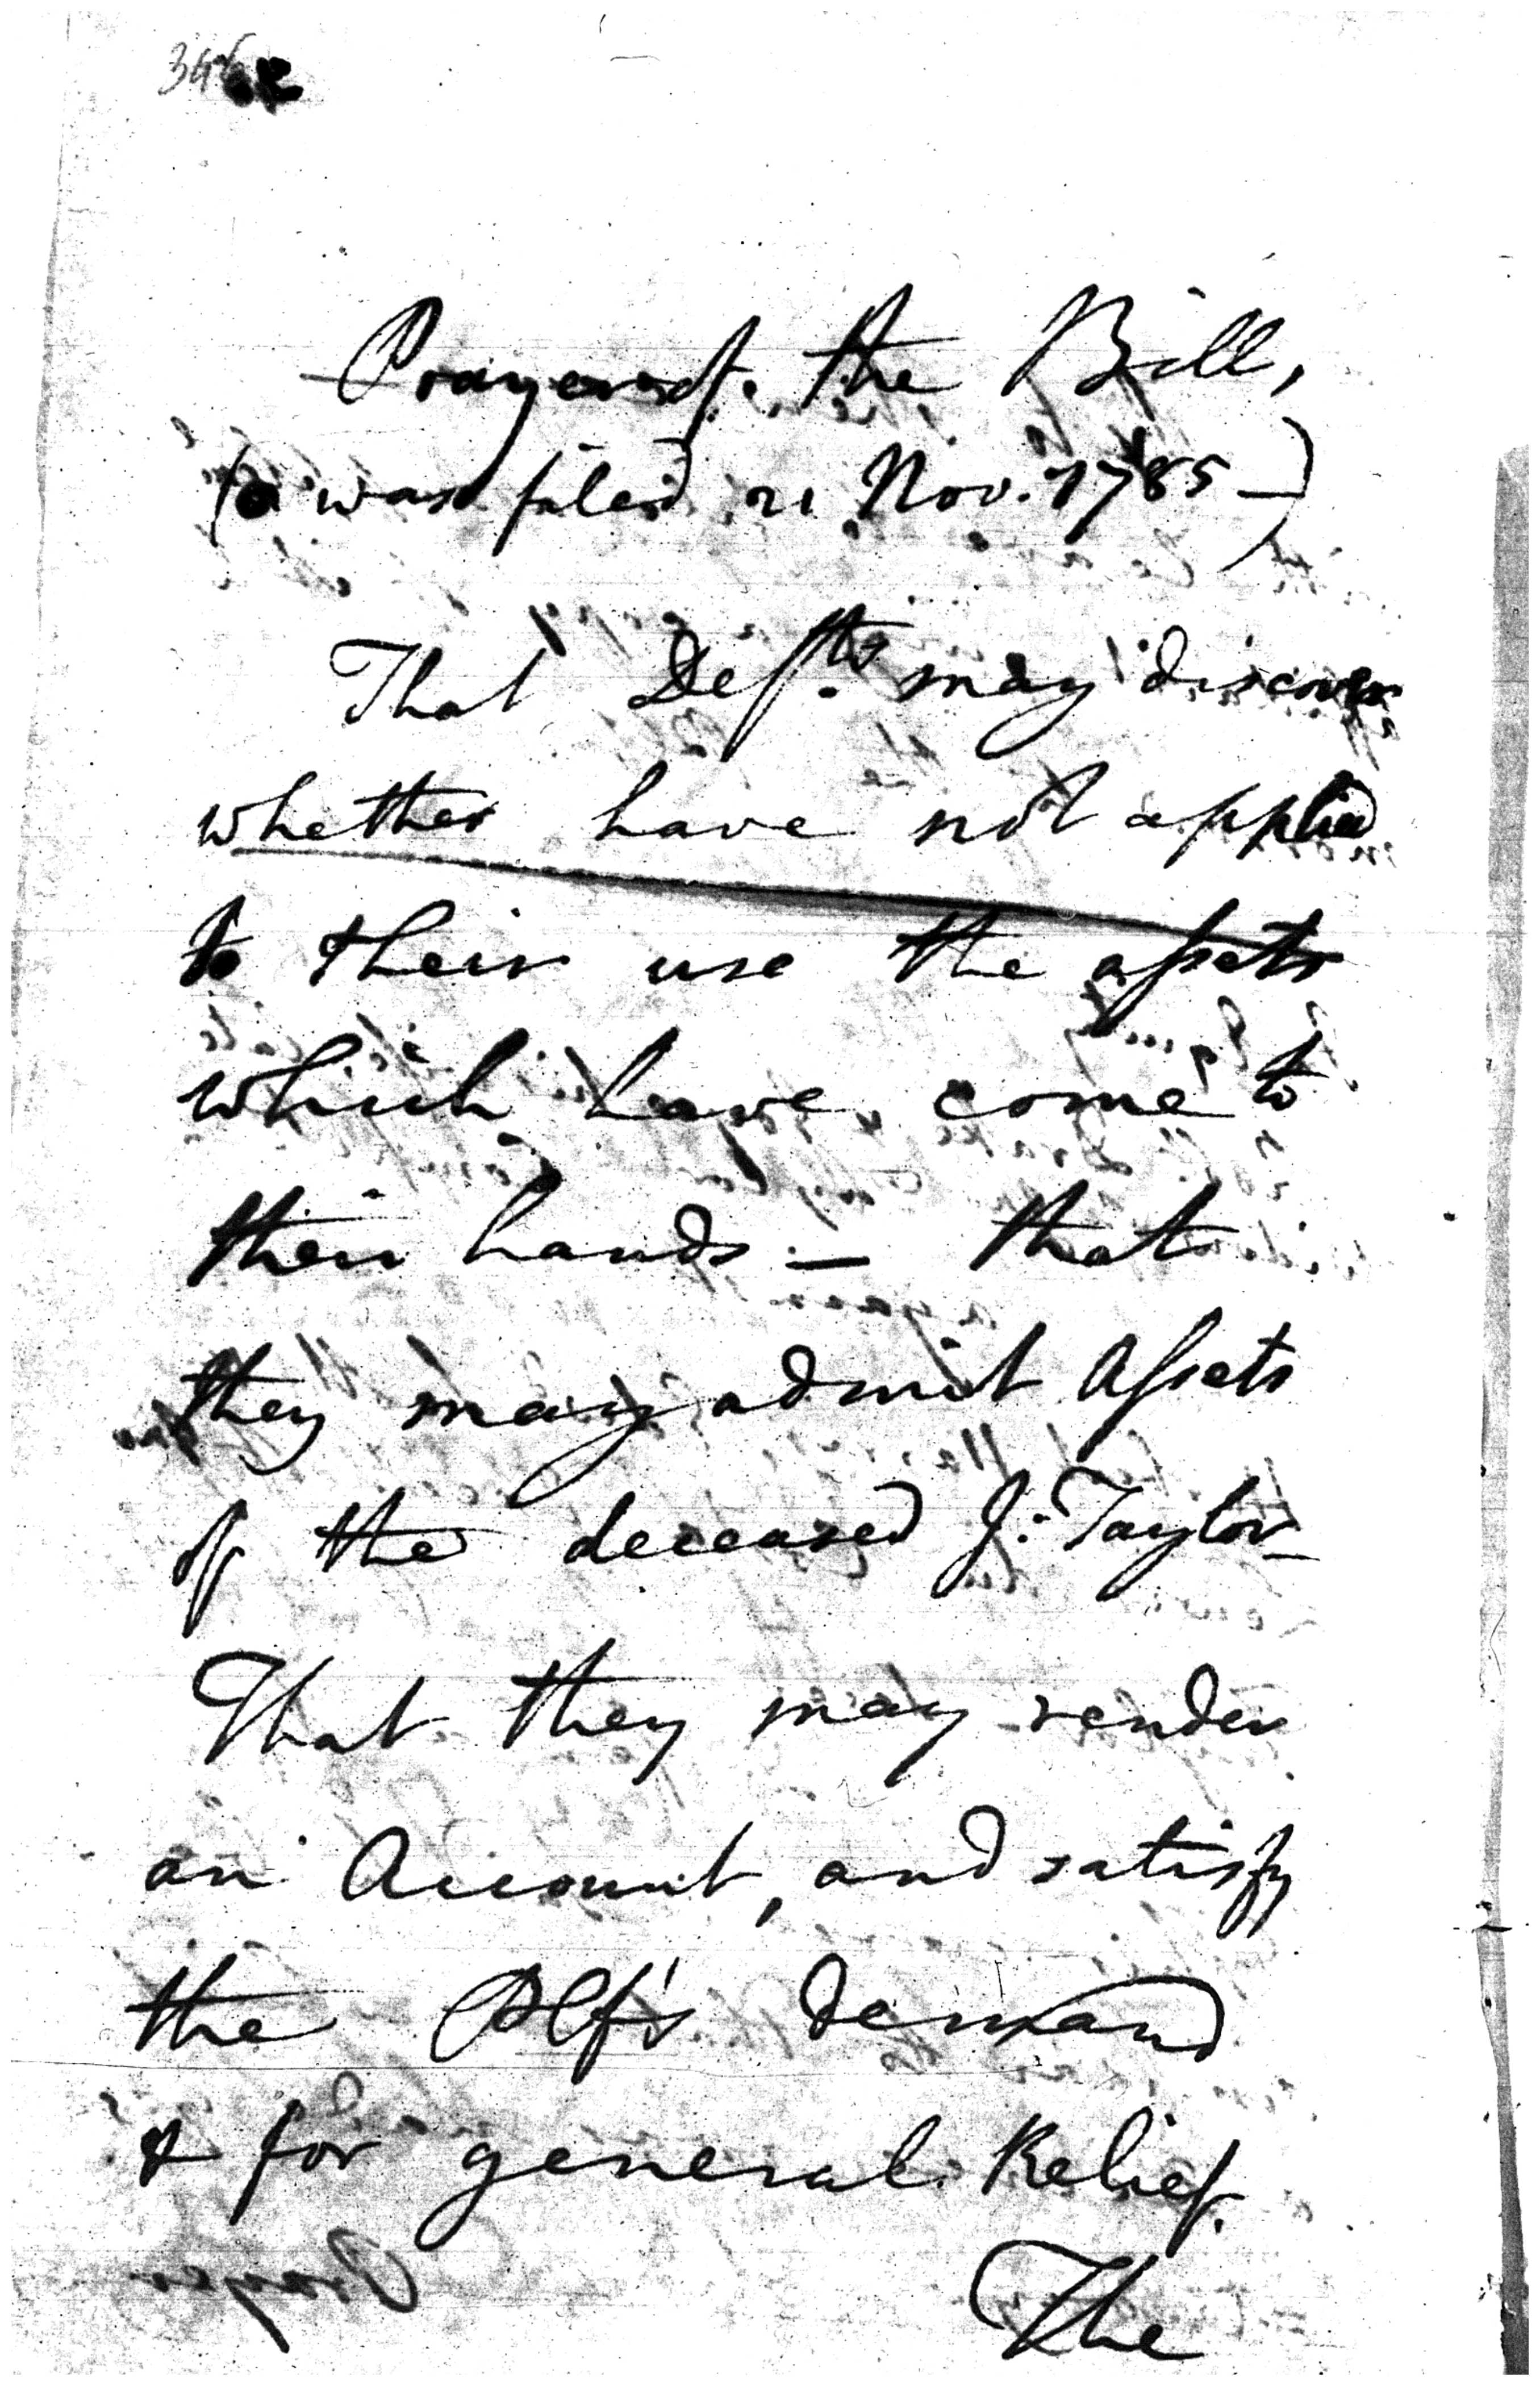 Prayer of the Bill,
( was filed 21 Nov. 1785 —)
That Defts. may discover
whether have not applied
to their use the assets
which have come to
their hands — that
they may admit Assets
of the deceased J. Taylor —
That they may render
an Account, and satisfy
the Plf's demand
& for general Relief.
The